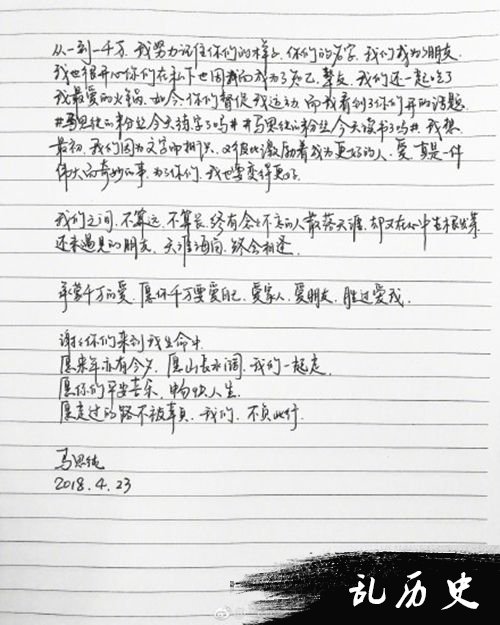 从一到一千万，我努力记住你们的样子，你们的名字，我们成为朋友。
我也很开心你们在私下也因我而成为了知己、挚友，我们还一起吃了
我最爱的火锅。如今，你们督促我运动，而我看到了你们开的话题
#马思纯的粉丝今天练字了吗# #马思纯的粉丝今天读书了吗#，我想，
最初，我们因为文字而相识，又彼此激励着成为更好的人，爱，真是一件
伟大而奇妙的事，为了你们，我也要变得更好。
我们之间，不算远，不算长，终有念念不忘的人散落天涯，却又在心中生根发芽
还未遇见的朋友，天涯海角，终会相逢。
承蒙千万的爱，愿你千万要爱自己，爱家人，爱朋友，胜过爱我。
谢谢你们来到我生命中。
愿来年亦有今夕，愿山长水阔，我们一起走。
愿你们平安喜乐，中的快人生。
愿走过的路不被辜负，我们，不负此行。
马思纯
2018.4.23
乱历史